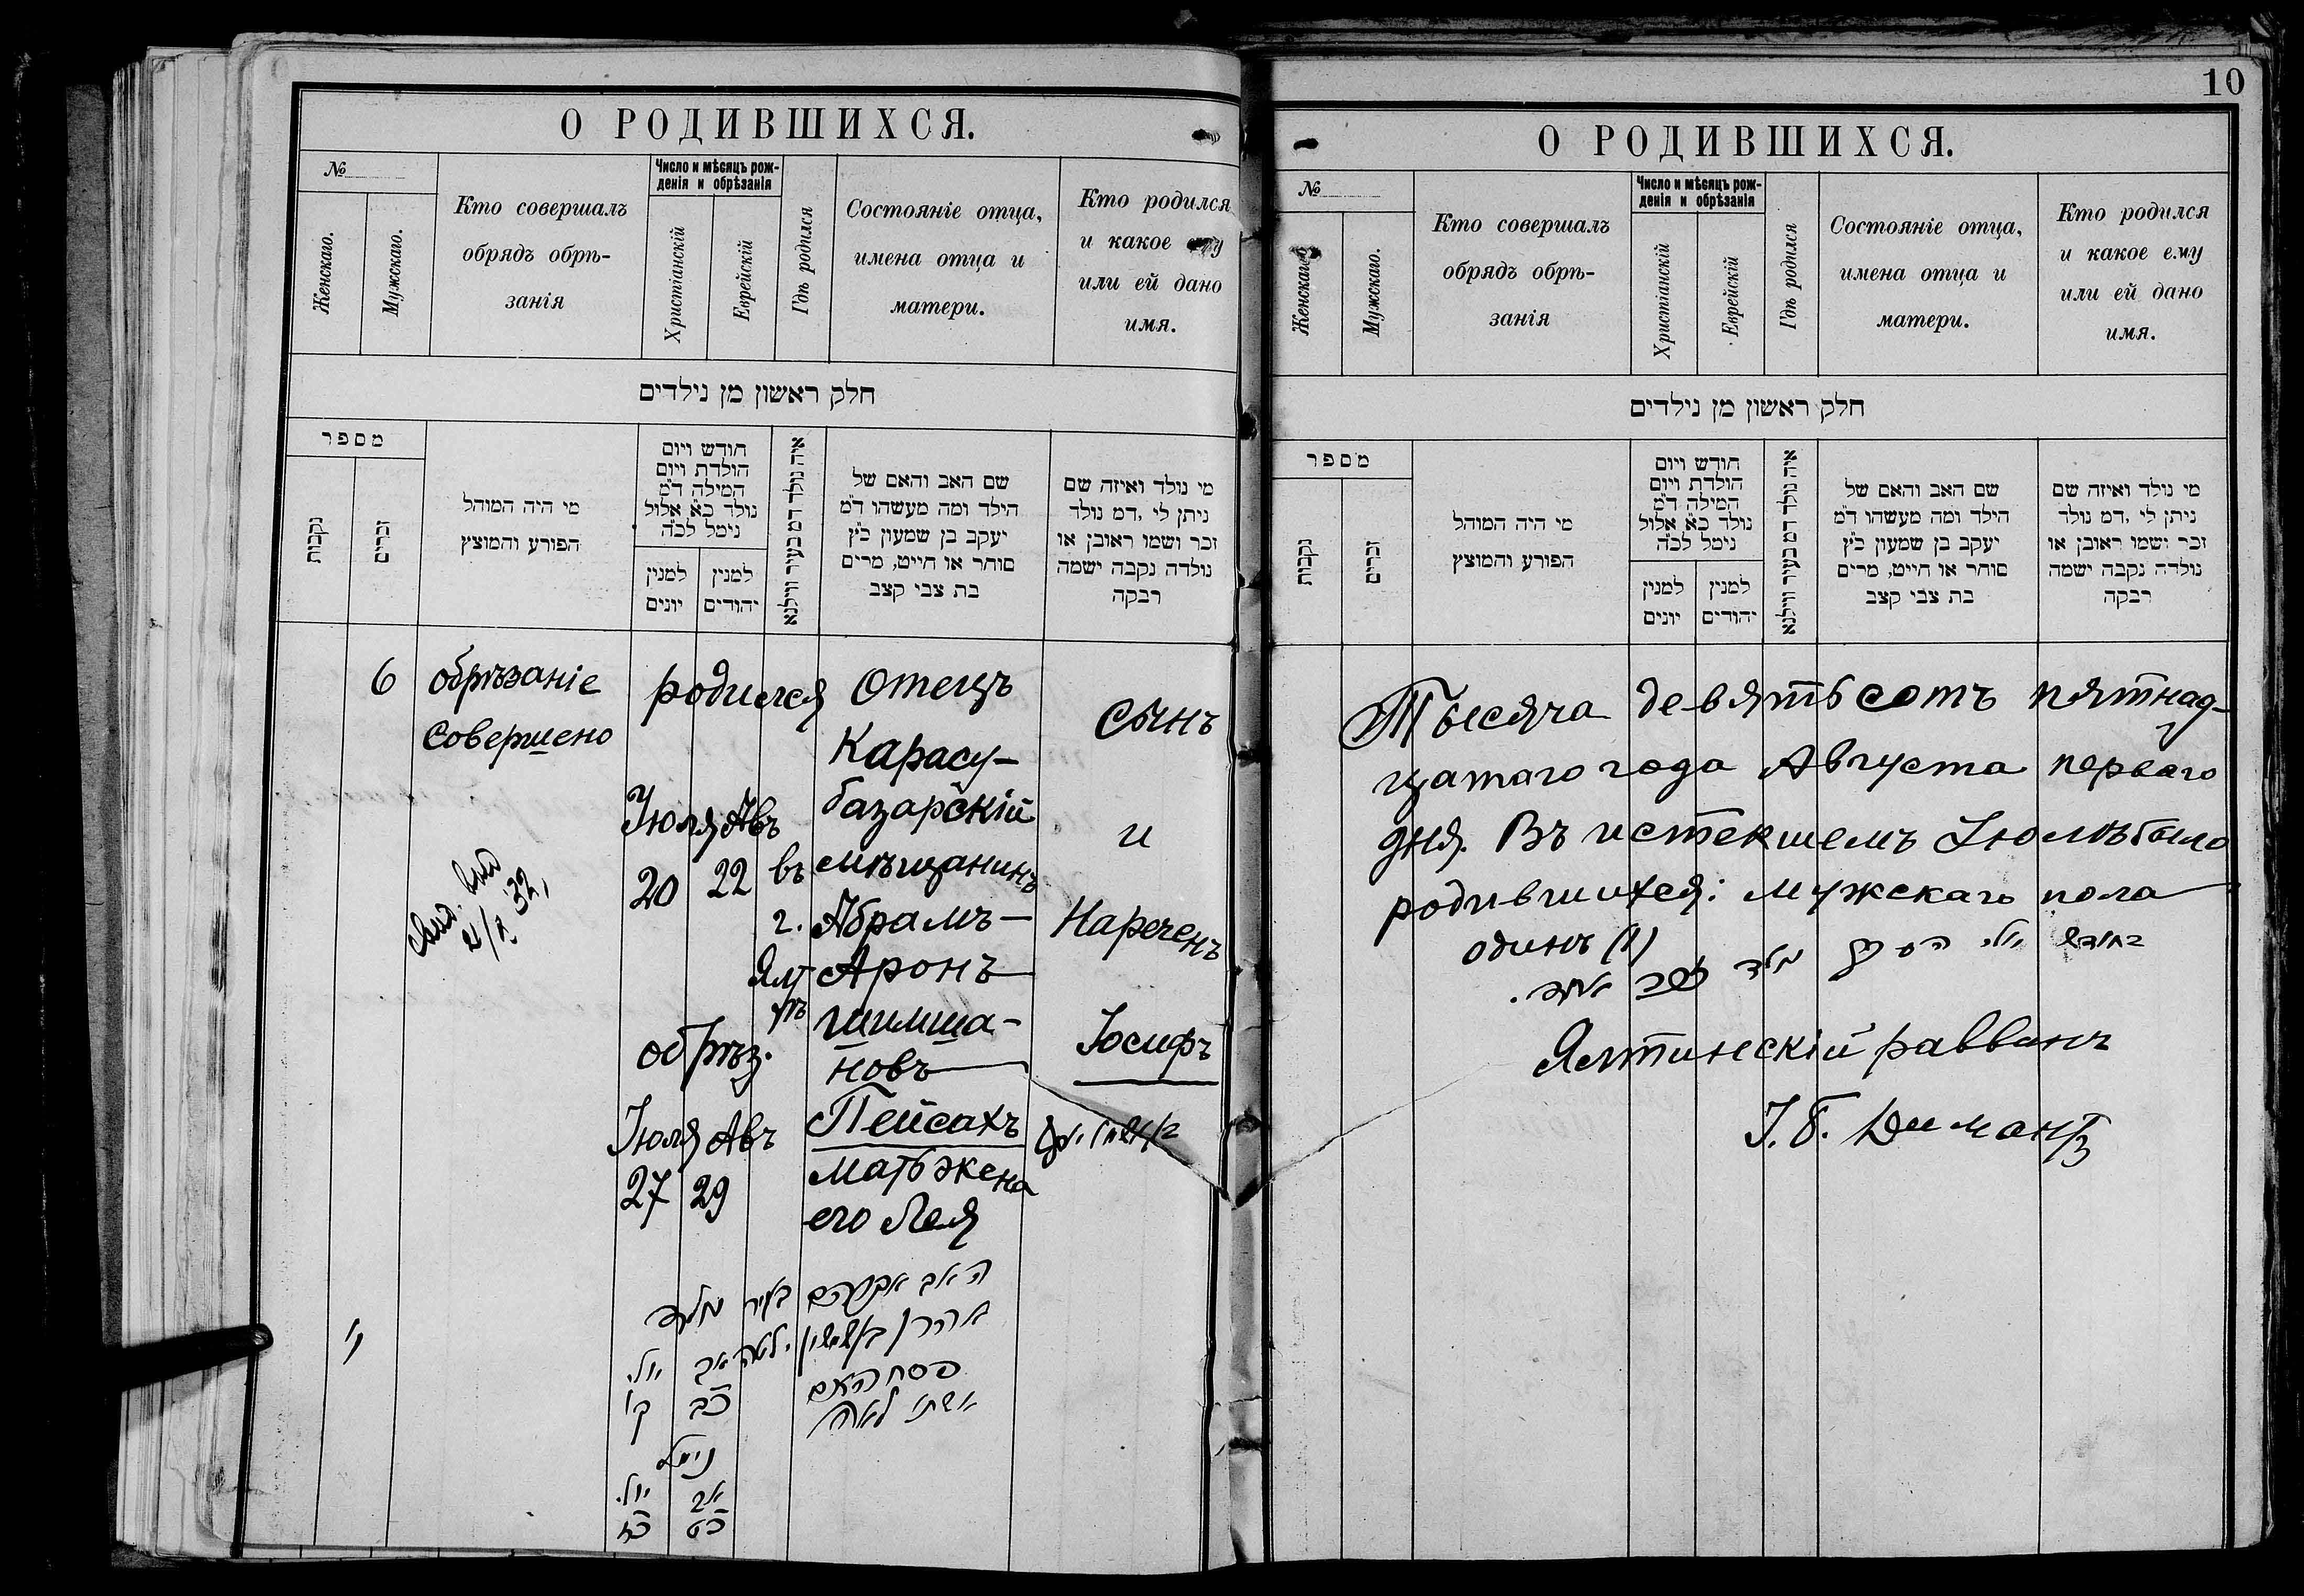 О РОДИВШИХСЯ.
№
Женскаго.
Мужскаго.
Кто совершалъ
обрядъ обрѣ-
занія
Число и мѣсяцъ рож-
денія и обрѣзанія
Христіанскій
Еврейскій
Гдѣ родился
Состояніе отца,
имена отца и
матери.
Кто родился
и какое ему
или ей дано
имя.
חלק ראשון מן נילדים
מספר
נקבות
זכרים
מי היה המוהל
הפורע והמוצץ
חודש ויום
הולדת ויום
המילה ד"מ
נולד כ"א אלול
נימל לכ"ה
למנין
יונים
למנין
יהודים
איה נולד דמ בעיר ווילנא
שם האב והאם של
הילד ומה מעשהו ד"מ
יעקב בן שמעון כ"ץ
סוחר או חייט, מרים
בת צבי קצב
מי נולד ואיזה שם
ניתן לי ,דמ נולד
זכר ושמו ראובן או
נולדה נקבה ישמה
רבקה
6
обрѣзаніе
совершено
2/X 32,
родился
Іюля Авъ
20 22
обрѣз.
Іюля Авъ
27 29
въ
г.
Ял-
тѣ
Отецъ
Карасу-
базарскій
мѣщанинъ
Абрамъ-
Аронъ
Шимша-
новъ
Пейсахъ
мать жена
его Лея
сынъ
и
Нареченъ
Іосифъ
ו'
נולד
יולי אב
כ' כב
נימול
יולי אב
כז כט
בעיר
ילטה
האב אברהם
אהרן בן שמשון
פסח האם
אשתו לאה
10
О РОДИВШИХСЯ.
№
Женскаго.
Мужскаго.
Кто совершалъ
обрядъ обрѣ-
занія
Число и мѣсяцъ рож-
денія и обрѣзанія
Христіанскій
Еврейскій
Гдѣ родился
Состояніе отца,
имена отца и
матери.
Кто родился
и какое ему
или ей дано
имя.
חלק ראשון מן נילדים
מספר
נקבות
זכרים
מי היה המוהל
הפורע והמוצץ
חודש ויום
הולדת ויום
המילה ד"מ
נולד כ"א אלול
נימל לכ"ה
למנין
יונים
למנין
יהודים
איה נולד דמ בעיר ווילנא
שם האב והאם של
הילד ומה מעשהו ד"מ
יעקב בן שמעון כ"ץ
סוחר או חייט, מרים
בת צבי קצב
מי נולד ואיזה שם
ניתן לי ,דמ נולד
זכר ושמו ראובן או
נולדה נקבה ישמה
רבקה
Тысяча девятьсотъ пятнад-
цатаго года Августа перваго
дня. Въ истекшемъ Іюлѣ было
родившихся: мужскаго пола
одинъ (1)
בחודש יולי נולד זכר אחד.
Ялтинскій раввинъ
І. Б. Димантъ